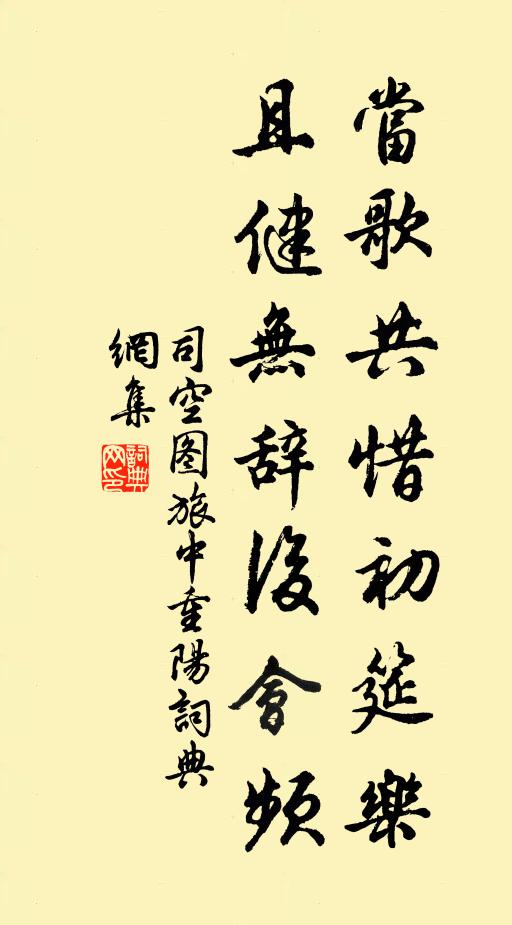 當歌共惜初筵樂
且健無辞後會頻
司空图旅中重陽詞典
網集
詞典
网印